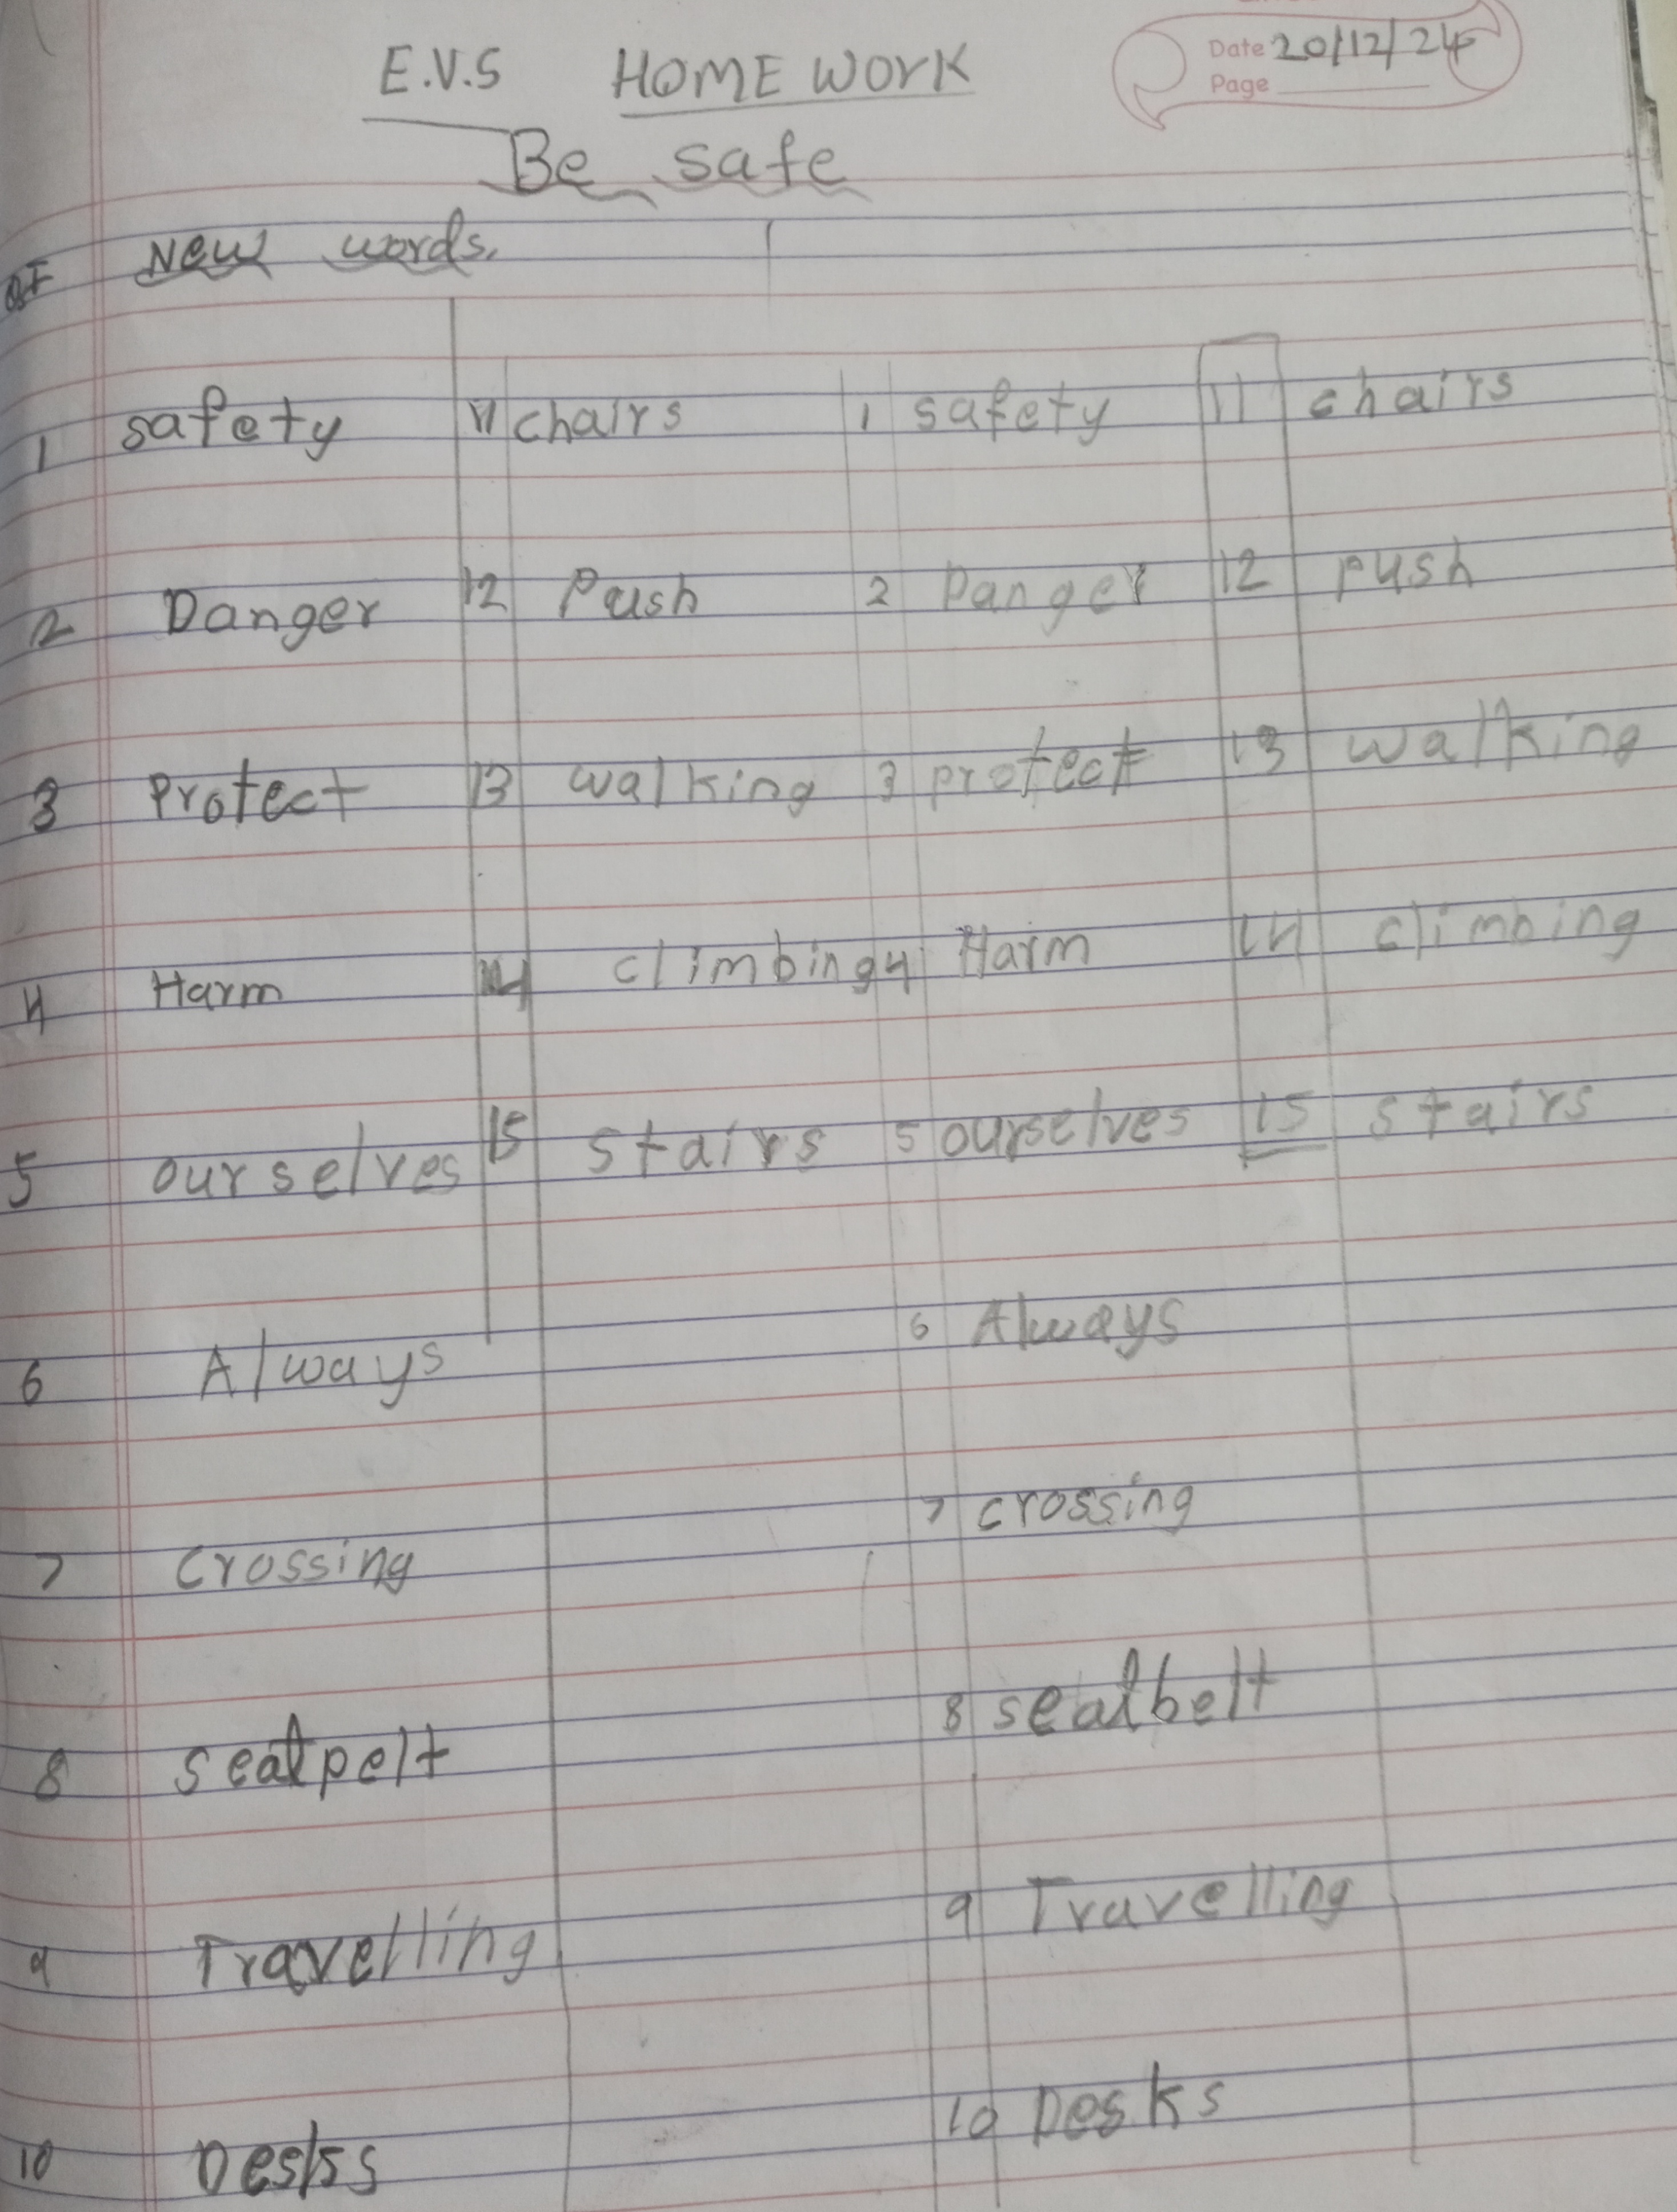 Date 20/12/24
Page
E.V.S HOME WORK
Be safe
New words.
1 safety 11 chairs 1 safety 11 chairs
2 Danger 12 Push 2 Danger 12 push
3 Protect 13 walking 3 protect 13 walking
4 Harm 14 climbing 4 Harm 14 climbing
5 ourselves 15 stairs 5 ourselves 15 stairs
6 Always 6 Always
7 crossing 7 crossing
8 seatpelt 8 seatbelt
9 Travelling 9 Travelling
10 Desks 10 Desks